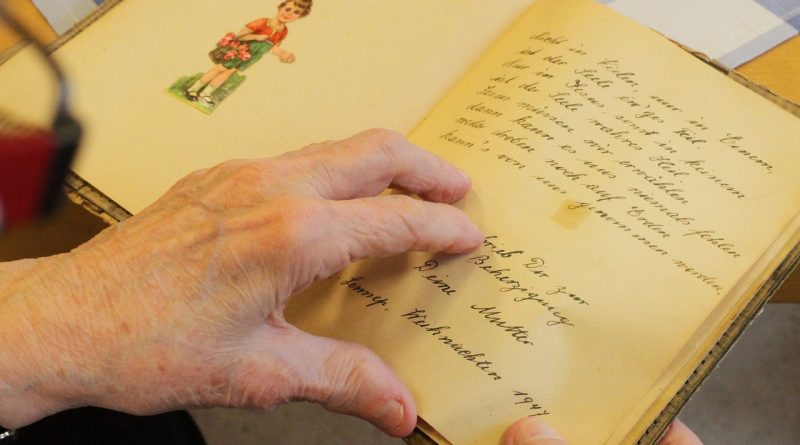 Nicht in Vielen, nur in Einem
ist der Seele ew'ges Teil
nur in Jesus sonst in keinem
ist der Seele wahres Heil
Jesus müssen wir erwählen
dann kann es uns niemals fehlen
weder droben noch auf Erden
kann's von uns genommen werden.
rieb Dir zur
Beherzigung
Deine Mutter
Lennep, Weihnachten 1947